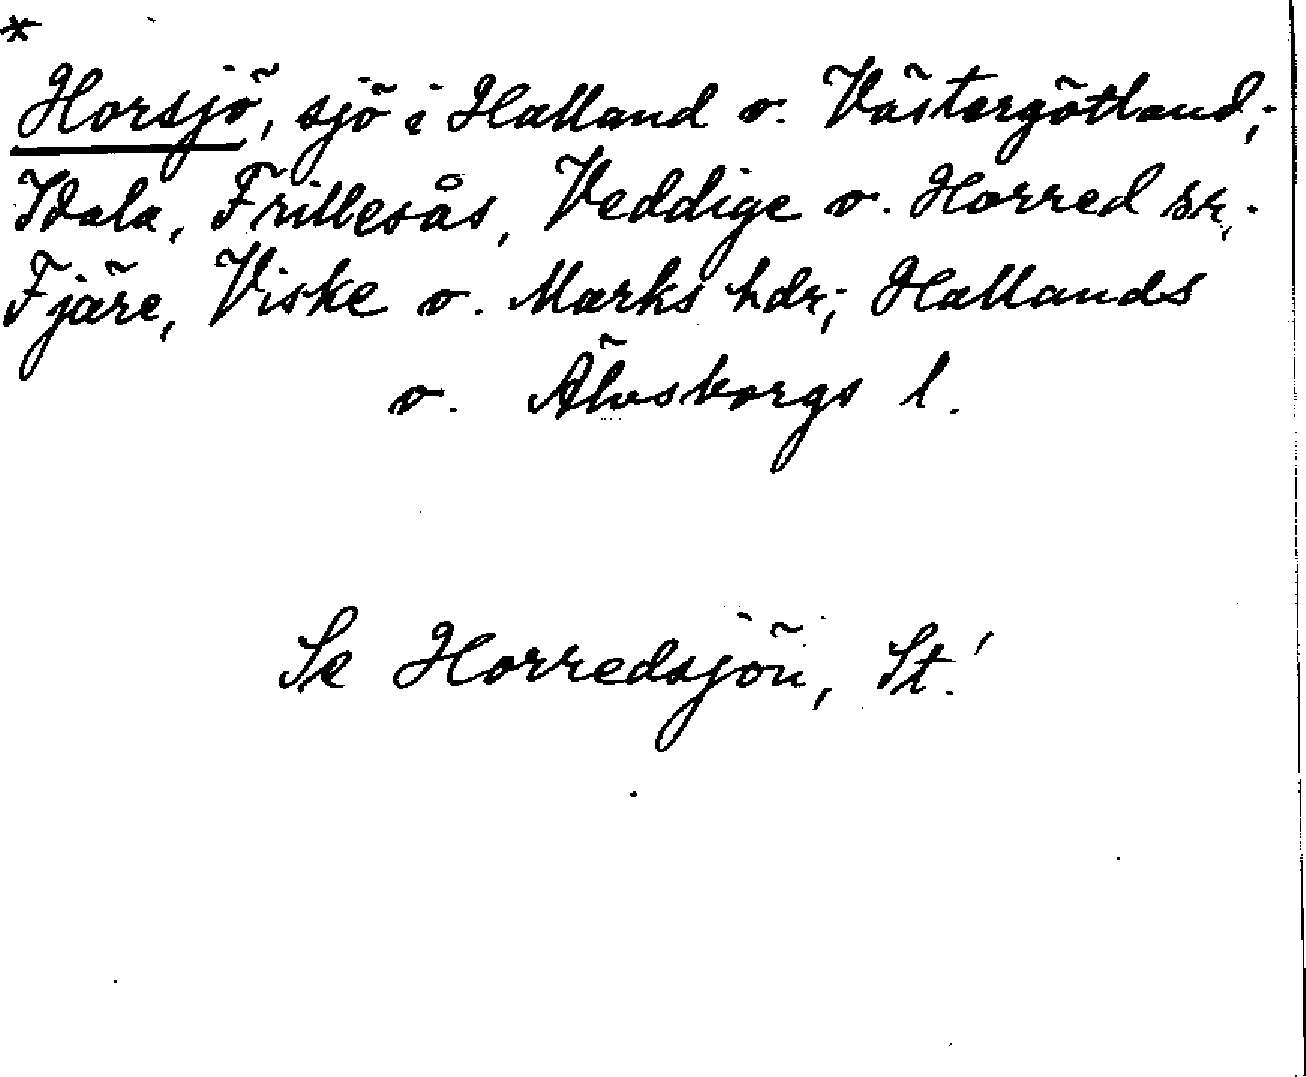 *
Horsjö, sjö i Halland o. Västergötland;
Idala, Frillesås, Veddige o. Horred sr,
Fjäre, Viske o. Marks hdr; Hallands
o. Älvsborgs l.
Se Horredsjön, St.!